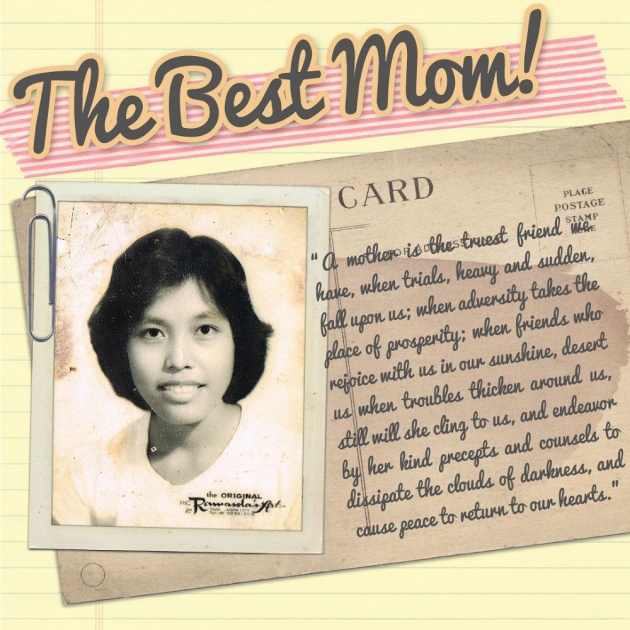 The Best Mom!
CARD
PLACE
POSTAGE
STAMP
"A mother is the truest friend we
have, when trials, heavy and sudden,
fall upon us; when adversity takes the
place of prosperity; when friends who
rejoice with us in our sunshine, desert
us when troubles thicken around us,
still will she cling to us, and endeavor
by her kind precepts and counsels to
dissipate the clouds of darkness, and
cause peace to return to our hearts."
the ORIGINAL